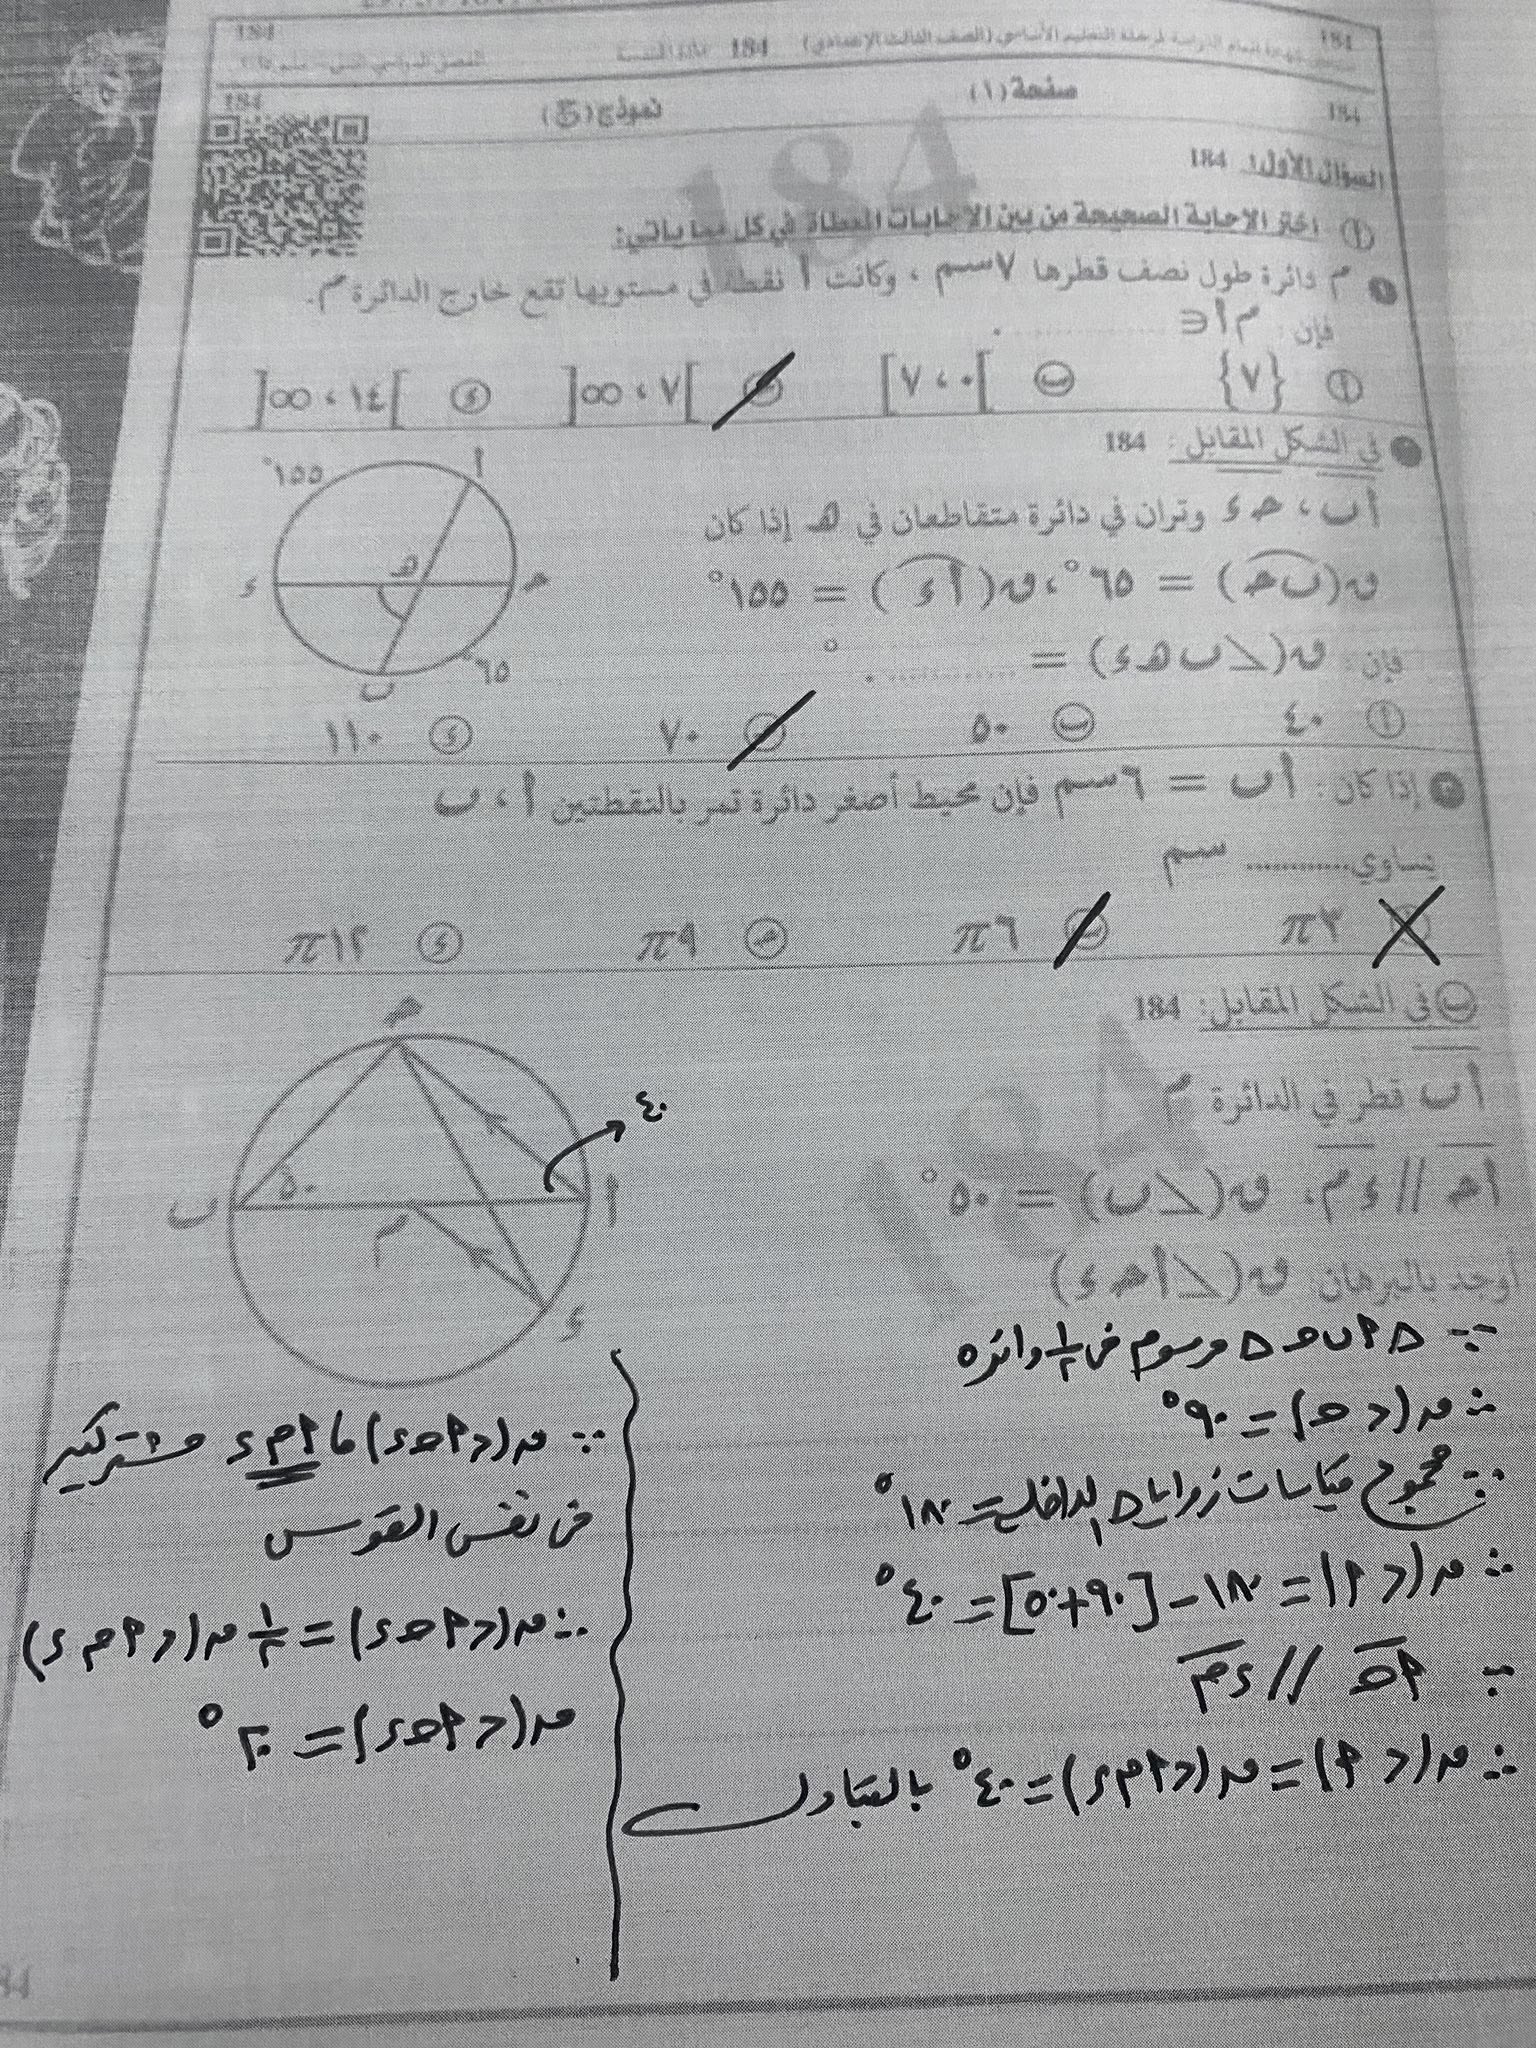 184
184
شهادة إتمام الدراسة لمرحلة التعليم الأساسي (الصف الثالث الإعدادي) 184 الهندسة
184
184
صفحة (١)
نموذج (ج)
السؤال الأول: 184
أ اختر الإجابة الصحيحة من بين الإجابات المعطاة في كل مما يأتي:
١ م دائرة طول نصف قطرها ٧ سم ، وكانت أ نقطة في مستويها تقع خارج الدائرة م.
فإن: م أ ∈ ............ .
أ {٧} ب ]٠ ، ٧[ جـ ]٧ ، ∞[ د ]١٤ ، ∞[
٢ في الشكل المقابل: 184
أ ب ، جـ د وتران في دائرة متقاطعان في هـ إذا كان
ق(ب جـ) = ٦٥° ، ق(أ د) = ١٥٥°
فإن: ق(∠ب هـ د) = ............ . °
١٥٥° أ د هـ جـ ب ٦٥°
أ ٤٠ ب ٥٠ جـ ٧٠ د ١١٠
٣ إذا كان: أ ب = ٦ سم فإن محيط أصغر دائرة تمر بالنقطتين أ ، ب
يساوي ............ سم
أ ٣π ب ٦π جـ ٩π د ١٢π
ب في الشكل المقابل: 184
أ ب قطر في الدائرة م
أ جـ // د م ، ق(∠ب) = ٥٠°
أوجد بالبرهان: ق(∠أ جـ د)
جـ ٤٠ ب ٥٠ م أ د
∵ Δ أ ب حـ Δ مرسوم في ١/٢ دائرة
∴ ق(∠حـ) = ٩٠°
∵ مجموع قياسات زوايا Δ الداخلة = ١٨٠°
∴ ق(∠أ) = ١٨٠ - [٩٠ + ٥٠] = ٤٠°
∵ أ حـ // د م
∴ ق(∠أ) = ق(∠أ م د) = ٤٠° بالتبادل
∵ ق(∠أ حـ د) ، أ م د مشتركين
في نفس القوس
∴ ق(∠أ حـ د) = ١/٢ ق(∠أ م د)
ق(∠أ حـ د) = ٢٠°
84